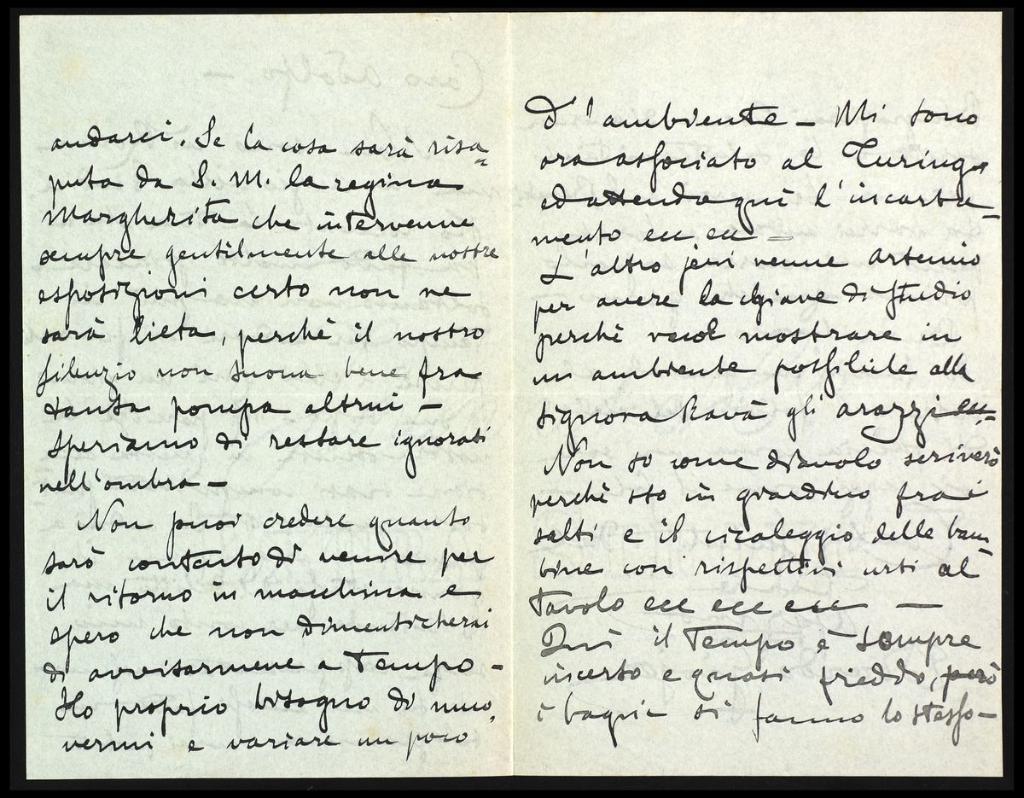 andarci. Se la cosa sarà risa=
puta da S. M. la regina
Margherita che intervenne
sempre gentilmente alle nostre
esposizioni certo non ne
sarà lieta, perchè il nostro
silenzio non suona bene fra
tanta pompa altrui –
Speriamo di restare ignorati
nell'ombra –
Non puoi credere quanto
sarò contento di venire per
il ritorno in macchina e
spero che non dimenticherai
di avvisarmene a tempo –
Ho proprio bisogno di muo,
vermi e variare un poco
d'ambiente – Mi sono
ora associato al Turing
ed attendo qui l'incarta=
mento ecc ecc –
L'altro jeri venne artemio
per avere la chiave di studio
perchè vuol mostrare in
un ambiente possibile alla
signora Ravà gli arazzi ecc.
Non so come diavolo scriverò
perchè sto in giardino fra i
salti e il cicaleggio delle bam
bine con rispettivi urti al
tavolo ecc ecc ecc –
Qui il tempo è sempre
incerto e quasi freddo, però
i bagni si fanno lo stesso –